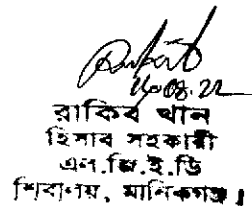 ১৬.০৪.২২
রাকিব খান
হিসাব সহকারী
এল.জি.ই.ডি
শিবালয়, মানিকগঞ্জ।